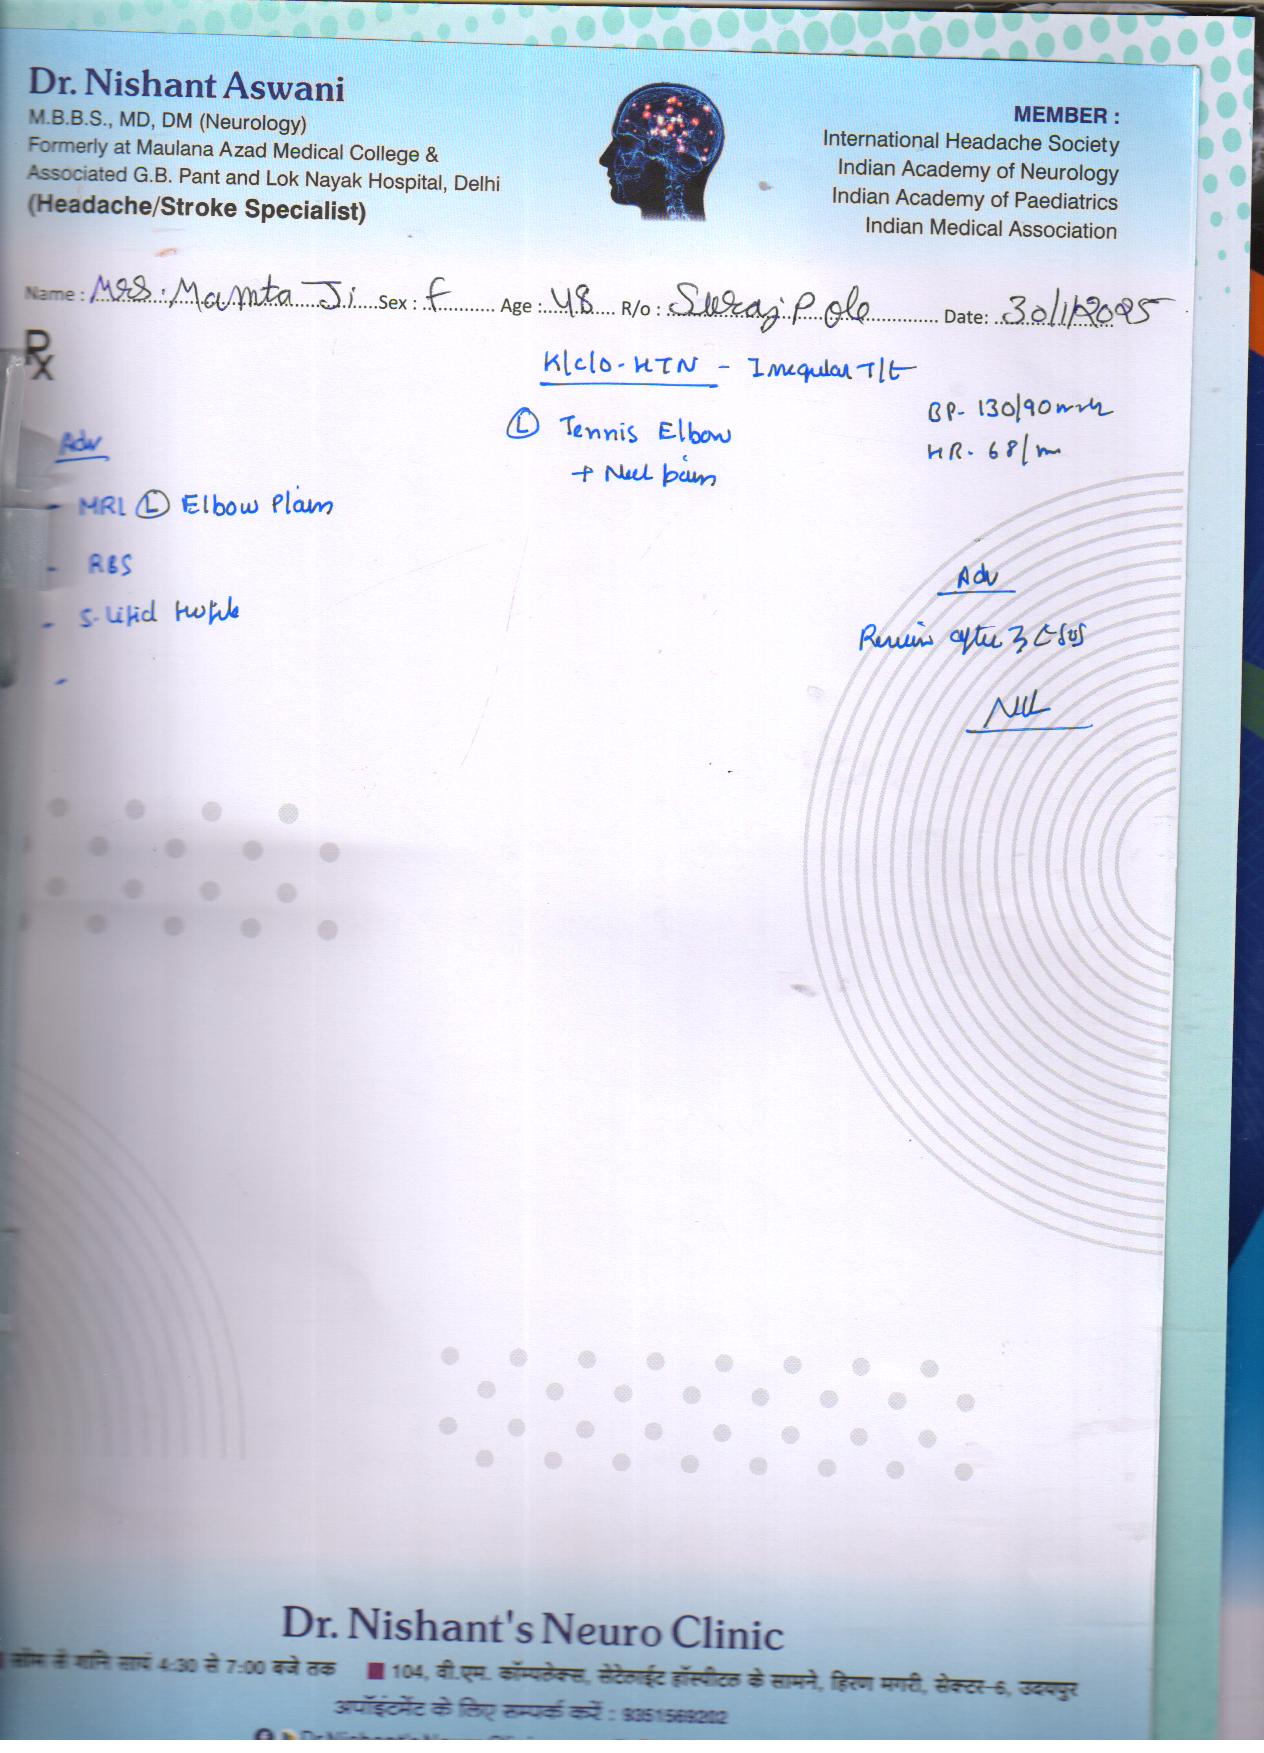 Dr. Nishant Aswani
M.B.B.S., MD, DM (Neurology)
Formerly at Maulana Azad Medical College &
Associated G.B. Pant and Lok Nayak Hospital, Delhi
(Headache/Stroke Specialist)
MEMBER :
International Headache Society
Indian Academy of Neurology
Indian Academy of Paediatrics
Indian Medical Association
Name : Mrs. Mamta Ji Sex : F Age : 48 R/o : Suraj Pole Date: 30/1/2025
Rx
K/c/o - HTN - Irregular T/t
BP- 130/90
HR- 68/m
(L) Tennis Elbow
+ pain
Adv
- MRI (L) Elbow Plain
- RBS
- S. Lipid Profile
-
Adv
Review after
Dr. Nishant's Neuro Clinic
सोम से शनि सायं 4:30 से 7:00 बजे तक
104, वी.एम. कॉम्पलेक्स, सेटेलाईट हॉस्पीटल के सामने, हिरण मगरी, सेक्टर-6, उदयपुर
अपॉइंटमेंट के लिए सम्पर्क करें : 9351569202